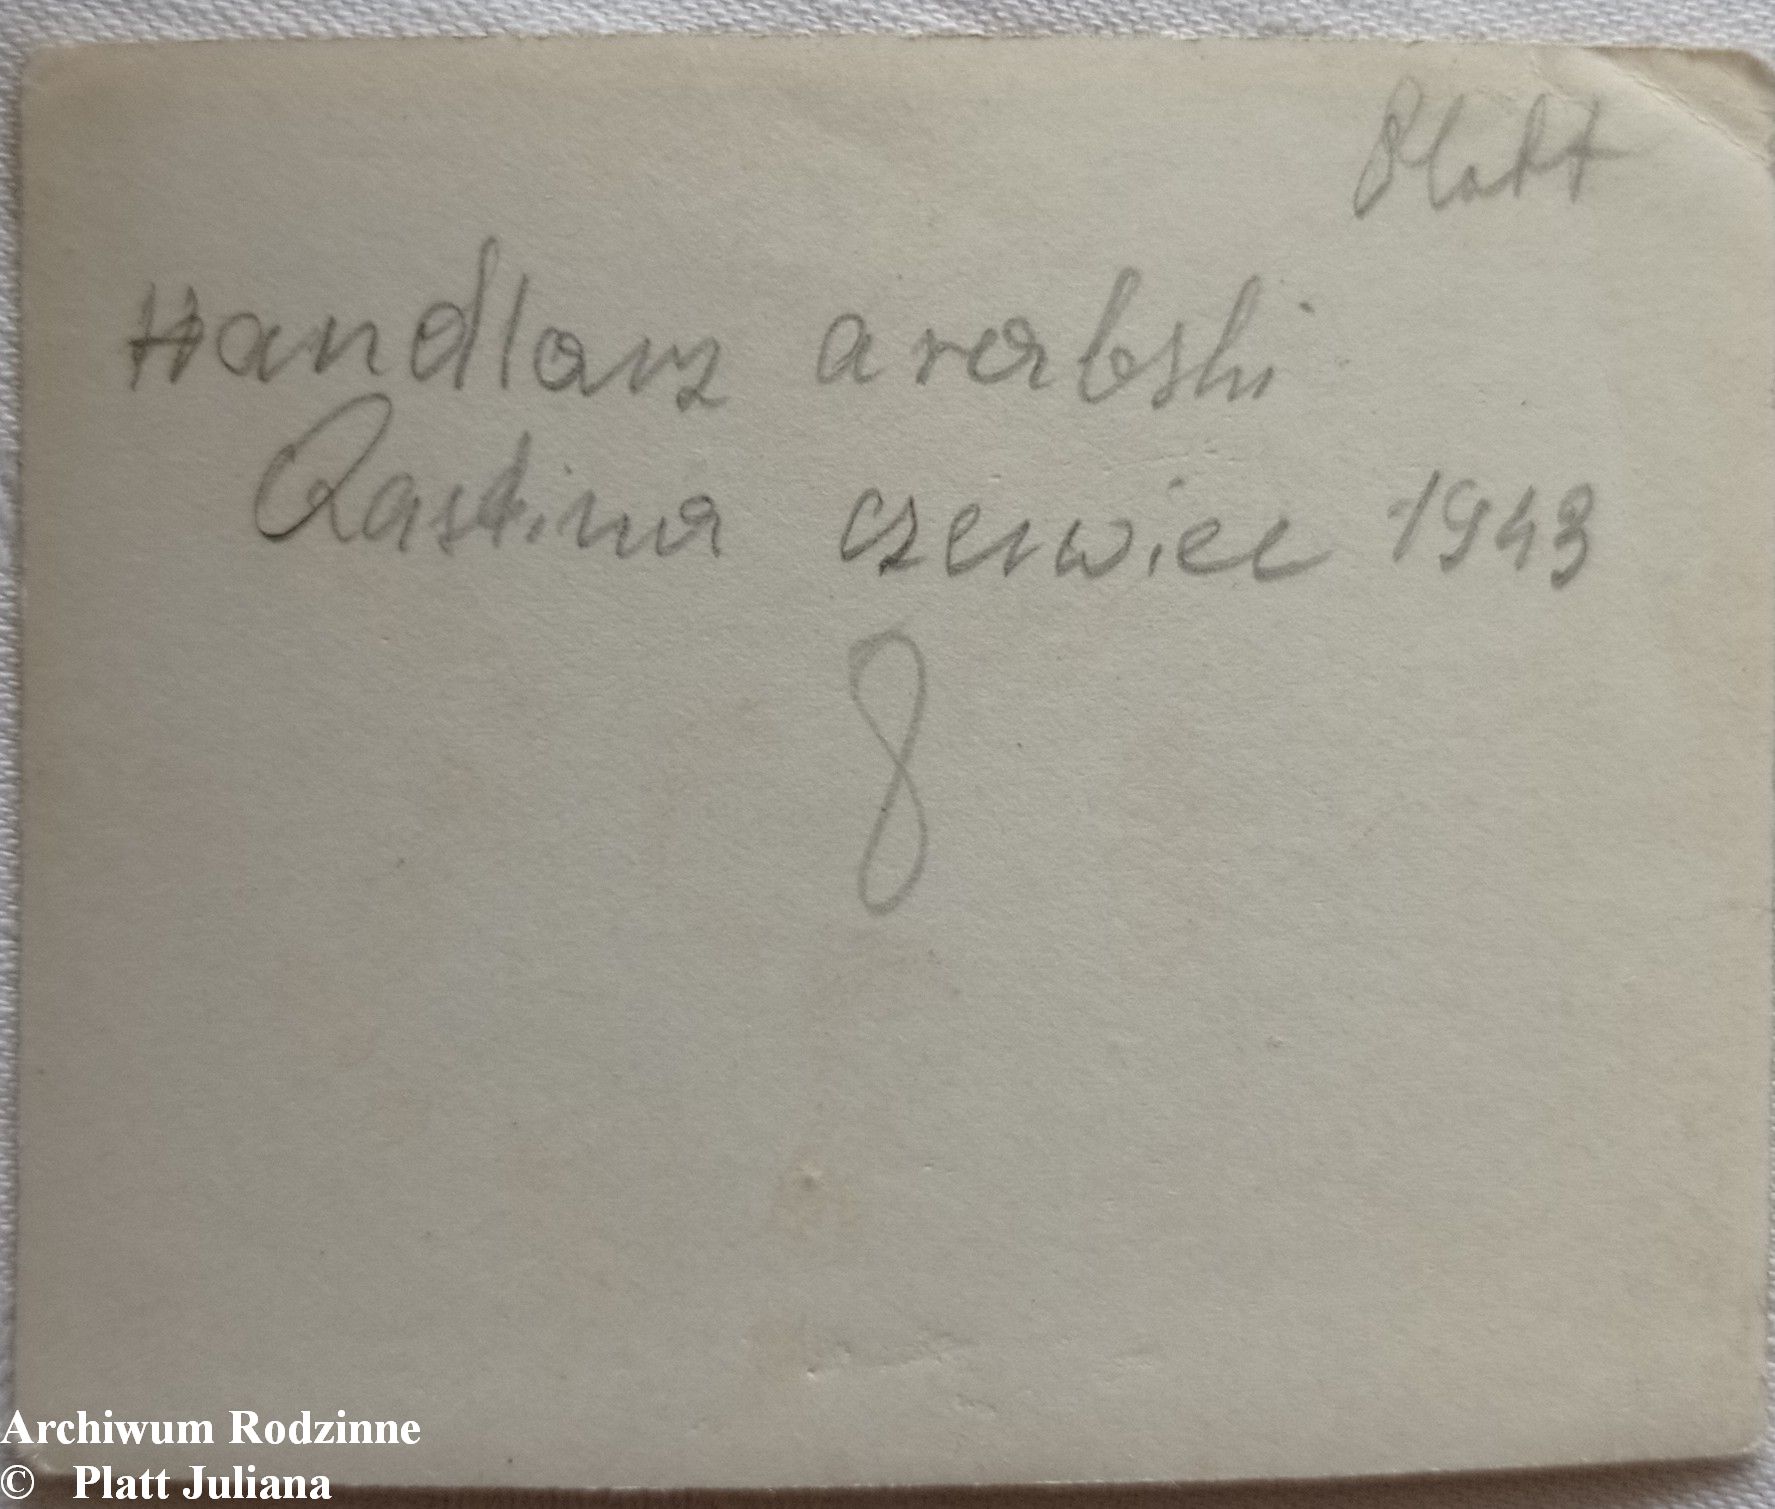 Platt
Handlarz arabski
Qastina czerwiec 1943
8
Archiwum Rodzinne
© Platt Juliana